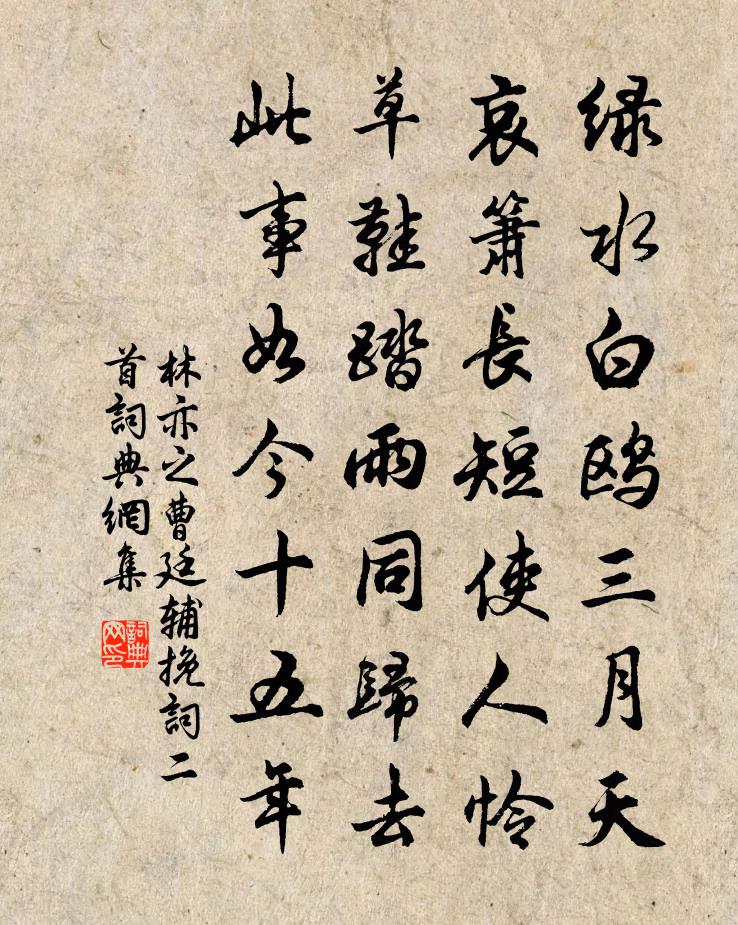 绿水白鸥三月天
哀箫長短使人怜
草鞋踏雨同歸去
此事如今十五年
林亦之曹廷辅挽詞二
首詞典網集
詞典
网印